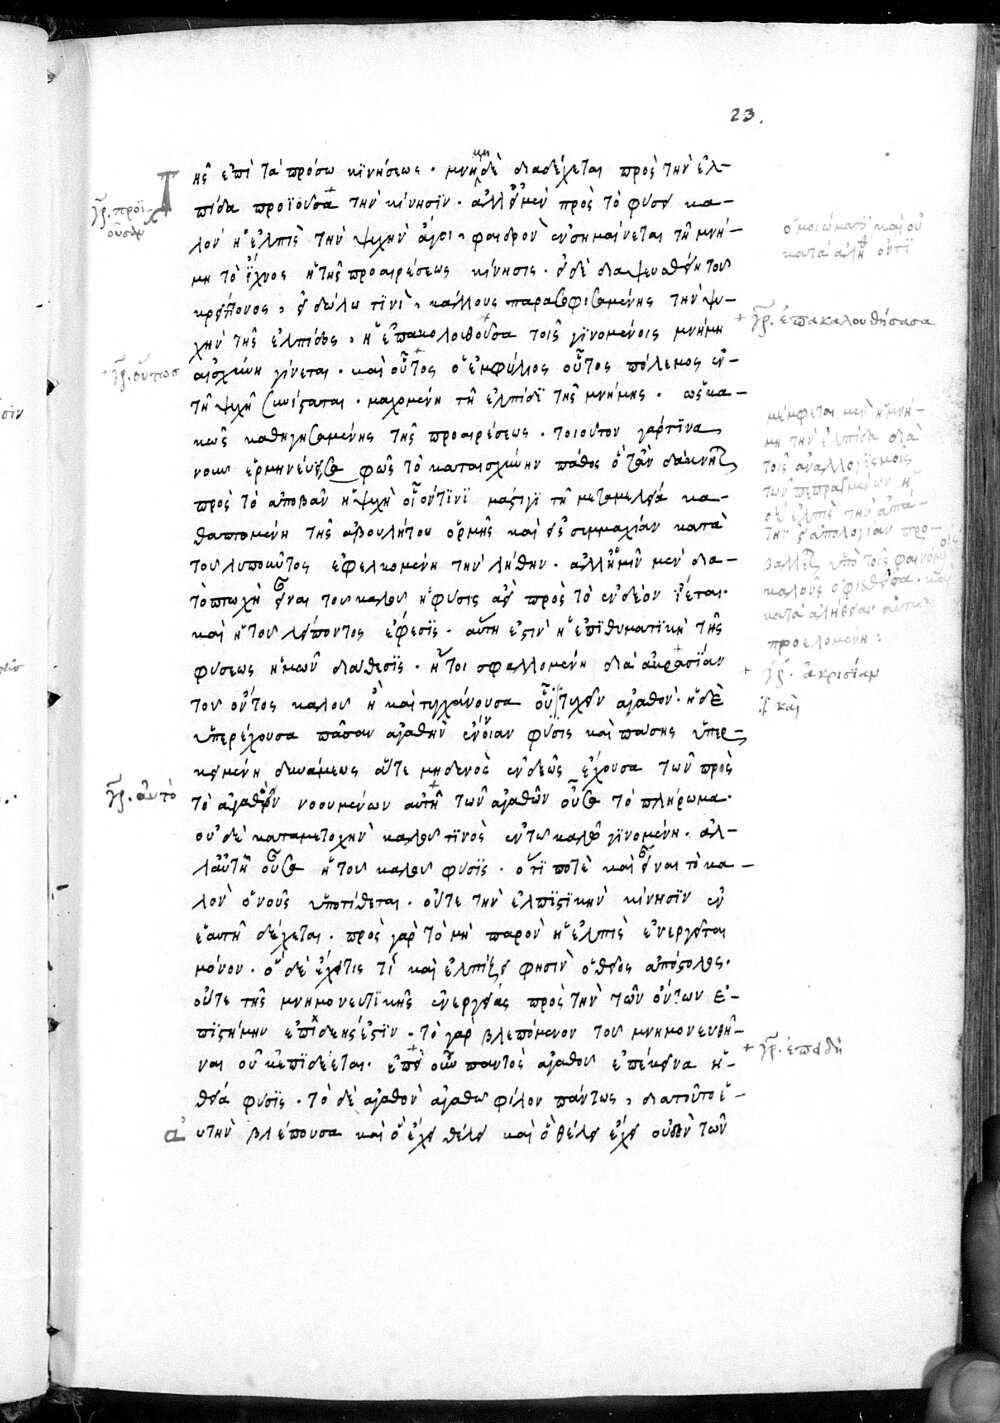 23.
Τῆς ἐπὶ τὰ πρόσω κινήσεως · μνήμη δὲ διαδέχεται πρὸς τὴν ἐλ-
πίδα προϊοῦσα τὴν κίνησιν · ἀλλ' εἰ μὲν πρὸς τὸ φύσει κα-
λὸν ἡ ἐλπὶς τὴν ψυχὴν ἄγοι, φαιδρὸν ἐνσημαίνεται τῇ μνή-
μῃ τὸ ἴχνος ἡ τῆς προαιρέσεως κίνησις · εἰ δὲ διαψευσθείη τοῦ
κρείττονος, εἰδώλω τινὶ, κάλλους παρασοφισαμένης τὴν ψυ-
χὴν τῆς ἐλπίδος, ἡ ἐπακολουθοῦσα τοῖς γινομένοις μνήμη
αἰσχύνη γίνεται · καὶ οὗτος ὁ ἐμφύλιος οὗτος πόλεμος ἐν
τῇ ψυχῇ συνίσταται · μαχομένη τῇ ἐλπίδι τῆς μνήμης · ὡς κα-
κῶς καθηγησαμένης τῆς προαιρέσεως · τοιοῦτον γάρ τινα
νοῦν ἑρμηνεύει σαφῶς τὸ κατ' αἰσχύνην πάθος ὅταν δάκνηται
πρὸς τὸ ἀποβὰν ἡ ψυχὴ οἷόν τινι μάστιγι τῇ μεταμελείᾳ κα-
θαπτομένη τῆς ἀβουλήτου ὁρμῆς καὶ εἰς συμμαχίαν κατὰ
τοῦ λυποῦντος ἐφελκομένη τὴν λήθην · ἀλλ' ἡμῖν μὲν διὰ
τὸ πτωχὴ εἶναι τοῦ καλοῦ ἡ φύσις ἀεὶ πρὸς τὸ ἐνδέον ἵεται ·
καὶ ἡ τοῦ λείποντος ἔφεσις · αὕτη ἐστὶν ἡ ἐπιθυματικὴ τῆς
φύσεως ἡμῶν διάθεσις · ἤτοι σφαλλομένη δι' ἀκρασίαν
τοῦ ὄντος καλοῦ ἢ καὶ τυγχάνουσα οὗ τυχεῖν ἀγαθόν · ἡ δὲ
ὑπερέχουσα πᾶσαν ἀγαθὴν ἔννοιαν φύσις καὶ πάσης ὑπερ-
κειμένη δυνάμεως ἅτε μηδενὸς ἐνδεῶς ἔχουσα τῶν πρὸς
τὸ ἀγαθὸν νοουμένων αὐτὴ τῶν ἀγαθῶν οὖσα τὸ πλήρωμα ·
οὐδὲ κατὰ μετοχὴν καλοῦ τινὸς ἐν τῶ καλῶ γινομένη · ἀλ-
λ' αὐτὴ οὖσα ἡ τοῦ καλοῦ φύσις · ὅ τί ποτε καὶ εἶναι τὸ κα-
λὸν ὁ νοῦς ὑποτίθεται · οὔτε τὴν ἐλπιστικὴν κίνησιν ἐν
ἑαυτῇ δέχεται · πρὸς γὰρ τὸ μὴ παρὸν ἡ ἐλπὶς ἐνεργεῖται
μόνον · ὃ δὲ ἔχει τις τί καὶ ἐλπίζει φησὶν ὁ θεῖος ἀπόστολος ·
οὔτε τῆς μνημονευτικῆς ἐνεργείας πρὸς τὴν τῶν ὄντων ἐ-
πιστήμην ἐπιδεής ἐστιν · τὸ γὰρ βλεπόμενον τοῦ μνημονευθῆ-
ναι οὐκ ἐπιδέεται · ἐπεὶ οὖν παντὸς ἀγαθοῦ ἐπέκεινα ἡ
θεία φύσις · τὸ δὲ ἀγαθὸν ἀγαθῶ φίλον πάντως, διὰ τοῦτο ἑ-
αυτὴν βλέπουσα καὶ ὃ ἔχει θέλει καὶ ὃ θέλει ἔχει οὐδὲν τῶν
γρ. προϊ-
οῦσαν
γρ. οὕτως
γρ. αὐτὸ
+ γρ. ἐπακολουθήσασα
μέμφεται μὲν ἡ μνή-
μη τὴν ἐλπίδα διὰ
τοῖς ἀναλογισμοῖς
τῶν πεπραγμένων ἡ
δὲ ἐλπὶς τὴν ἀπά-
την εἰς ἀπολογίαν προ-
βάλλεται
προελομένη :
+ γρ. ἀκρισίαν
καὶ
+ γρ. ἐπειδὴ